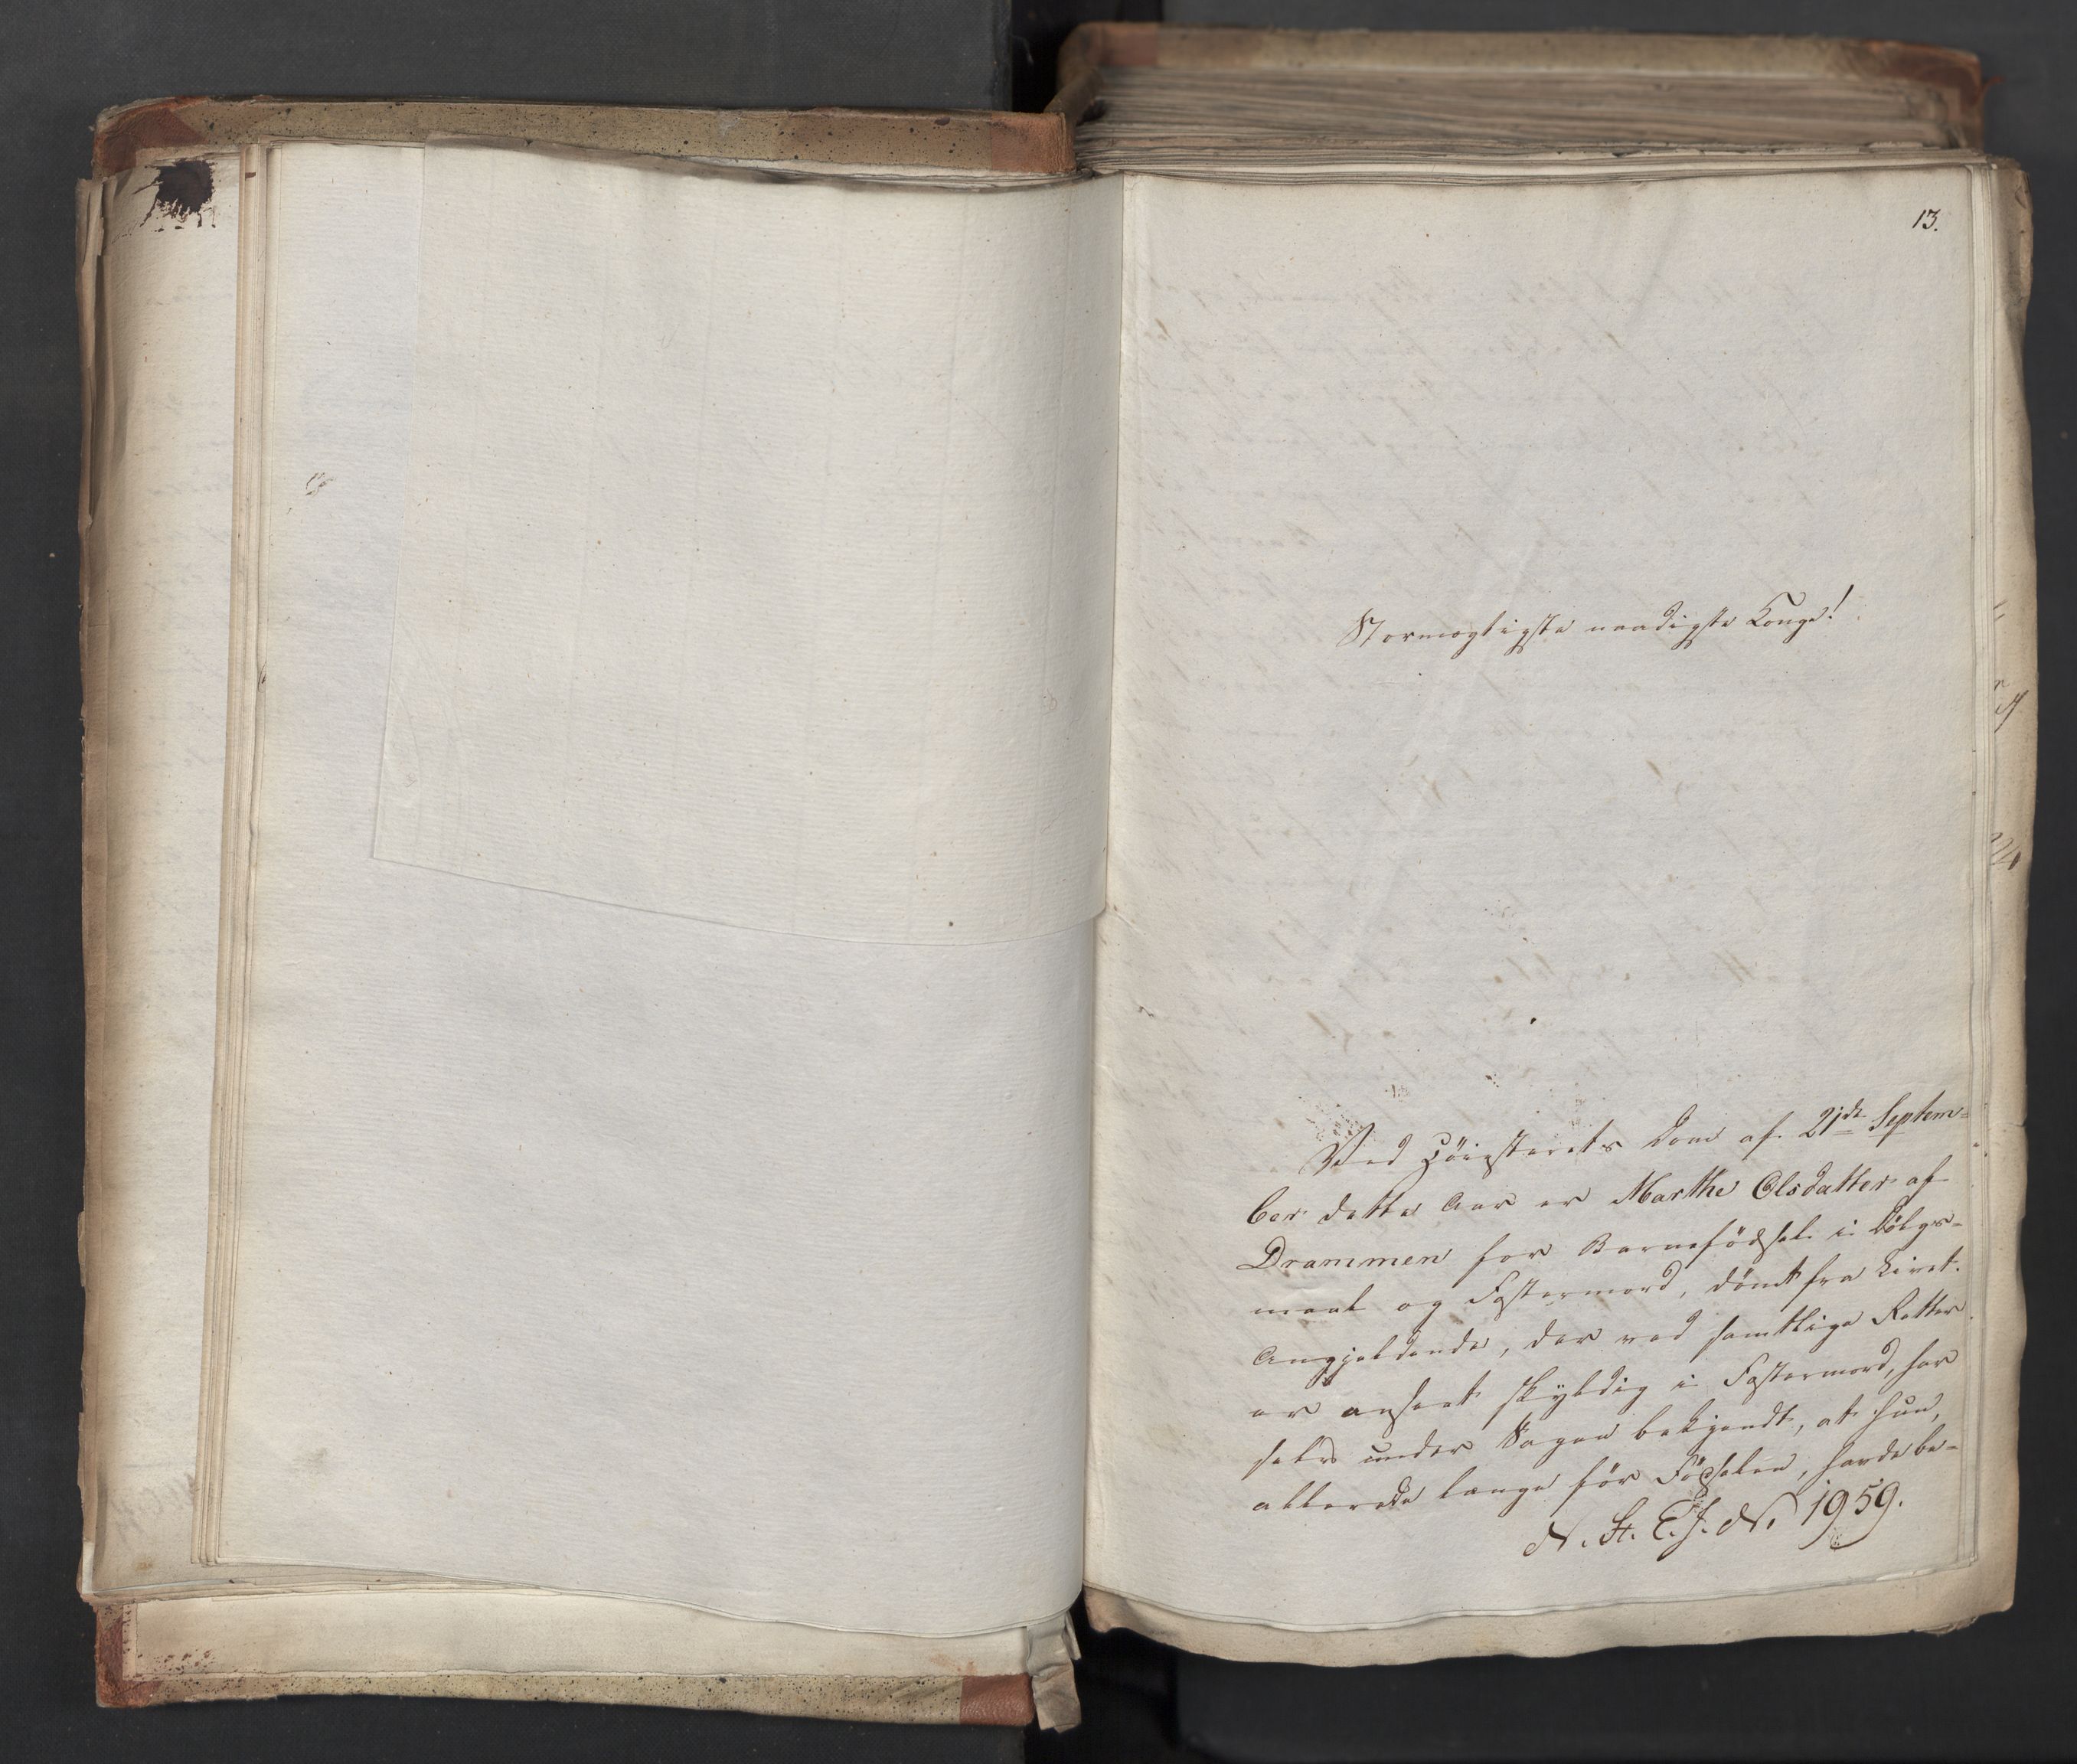 13.
Stormægtigste naadigste Konge!
Ved Høiesterets Dom af 21de Septem-
ber dette Aar er Marthe Olsdatter af
Drammen for Barnefödsel i Dölgs-
maal og Fostermord, dömt fra Livet.
Angjeldende, der ved samtlige Retter
er anseet skyldig i Fostermord, har
selv under Sagen bekjendt, at hun,
allerede længe för Födselen, havde be-
N. St. E. J. N. 1959.